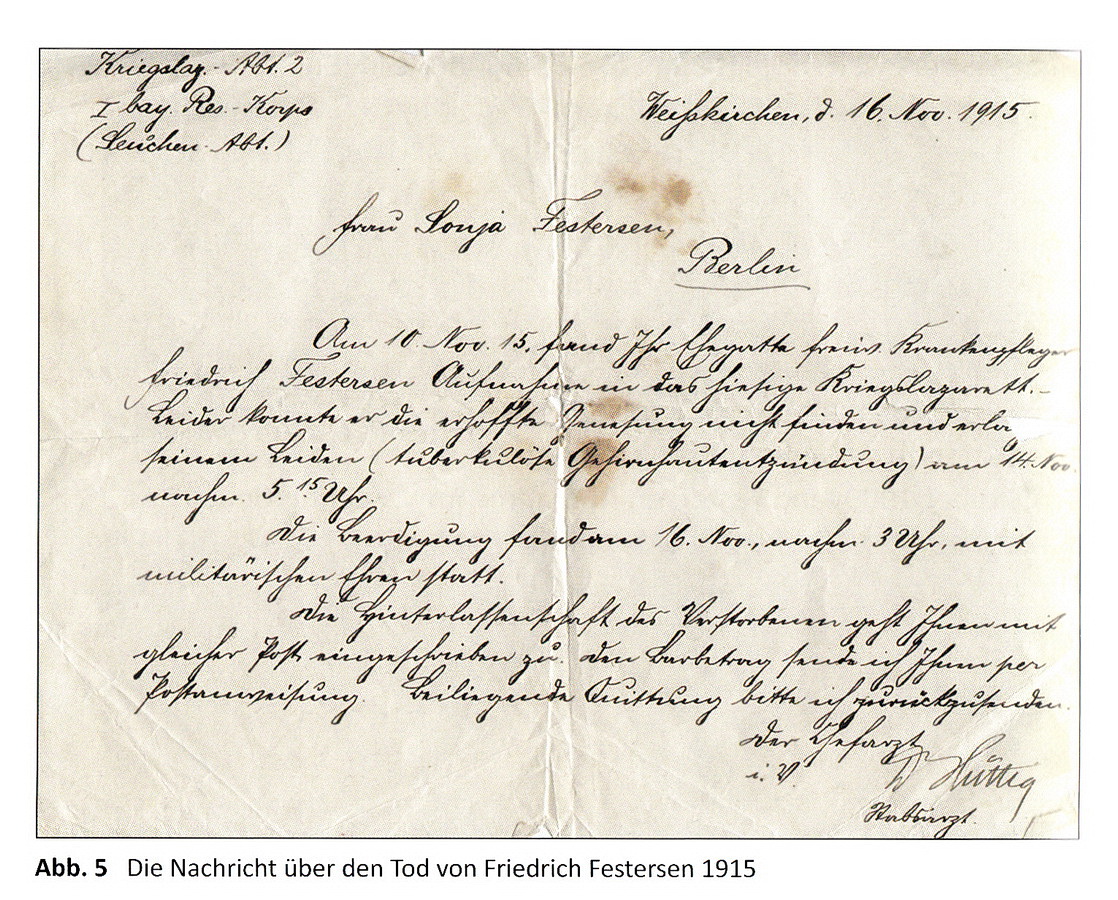 Kriegslaz.- Abt. 2
I bay. Res.-Korps
(Seuchen-Abt.)
Weißkirchen, d. 16. Nov. 1915.
Frau Sonja Festersen,
Berlin
Am 10. Nov. 15. fand Ihr Ehegatte freiw. Krankenpfleger
Friedrich Festersen Aufnahme in das hiesige Kriegslazarett.-
Leider konnte er die erhoffte Genesung nicht finden und erla
seinem Leiden (tuberkulöse Gehirnhautentzündung) am 14. Nov.
nachm. 5.15 Uhr.
Die Beerdigung fand am 16. Nov., nachm. 3 Uhr, mit
militärischen Ehren statt.
Die Hinterlassenschaft des Verstorbenen geht Ihnen mit
gleicher Post eingeschrieben zu. Den Barbetrag sende ich Ihnen per
Postanweisung. Beiliegende Quittung bitte ich zurückzusenden.
Der Chefarzt
i. V. Dr Hüttig
Stabsarzt.
Abb. 5 Die Nachricht über den Tod von Friedrich Festersen 1915